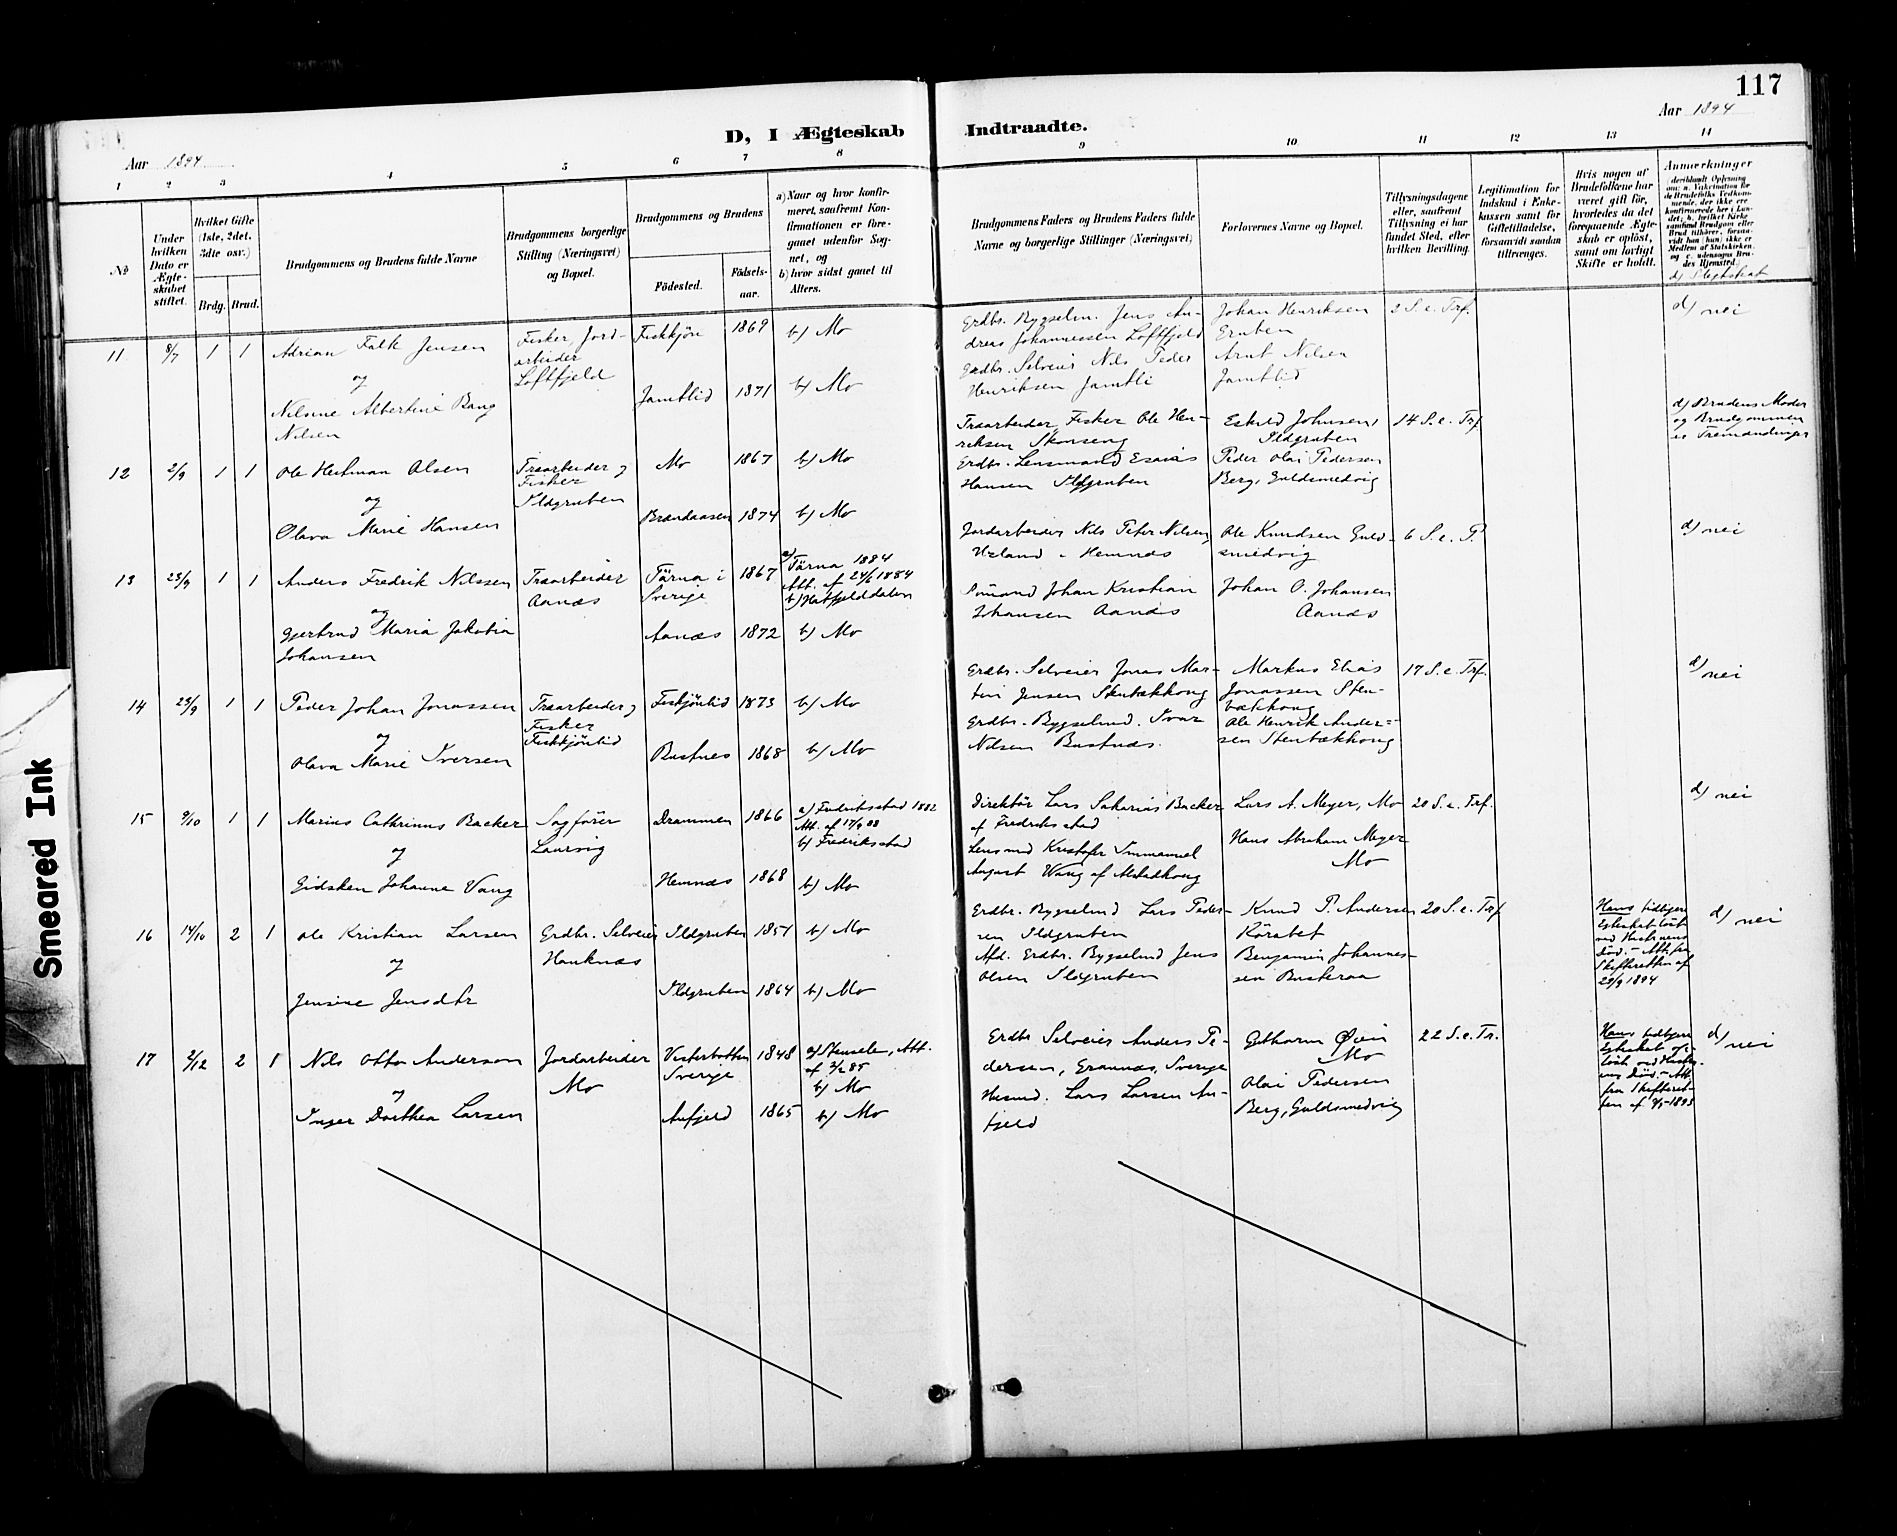 117
D, I Ægteskab Indtraadte.
Aar 1894
Aar 1894
1 2 3 4 5 6 7 8 9 10 11 12 13 14
No
Under hvilken Dato er Ægteskabet stiftet.
Hvilket Gifte (1ste, 2det, 3dte osv.)
Brdg. Brud.
Brudgommens og Brudens fulde Navne
Brudgommens borgerlige Stilling (Næringsvei) og Bopæl.
Brudgommens og Brudens
Födested.
Födselsaar.
a) Naar og hvor konfirmeret, saafremt Konfirmationen er foregaaet udenfor Sognet, og
b) hvor sidst gaaet til Alters.
Brudgommens Faders og Brudens Faders fulde Navne og borgerlige Stillinger (Næringsvei)
Forlovernes Navne og Bopæl.
Tillysningsdagene eller, saafremt Tillysning ei har fundet Sted, efter hvilken Bevilling.
Legitimation for Indskud i Enkekassen samt for Giftetilladelse, forsaavidt saadan tiltrænges.
Hvis nogen af Brudefolkene har været gift för, hvorledes da det foregaaende Ægteskab er oplöst, samt om lovligt Skifte er holdt.
Anmærkninger
d) Slegtskab
11 8/7 1 1
Adrian Falk Jensen
og
Nilsine Albertine Bang
Nilsen
Fisker, Jord-
arbeider
Loftfjeld
Fiskkjön 1869 b) Mo
Jamtlid 1871 b) Mo
Grdbr. Bygselm. Jens An-
dreas Johannessen Loftfjeld
Grdbr. Selveier Nils Peder
Henriksen Jamtli
Johan Henriksen
Gruben
Arnt Nilsen
Jamtlid
2 S. e. Trf.
d) nei
12 2/9 1 1
Ole Herman Olsen
og
Olava Marie Hansen
Træarbeider og
Fisker
Ildgruben
Mo 1867 b) Mo
Brændaasen 1874 b) Mo
Træarbeider, Fisker Ole Hen-
riksen Skonseng
Grdbr. Lensmand Esaias
Hansen Ildgruben
Eskild Johnsen,
Ildgruben
Peder Olai Pedersen
Berg, Guldsmedvig
14 S. e. Trf
d) Brudens Moder
og Brudgommen
er Tremændinger
13 23/9 1 1
Anders Fredrik Nilssen
og
Gjertrud Maria Jakobia
Johansen
Træarbeider
Aanæs
Tärna i
Sverige
1867
a) Tärna 1884
Att. af 24/6 1884
b) Hatfjelddalen
Aanæs 1872 b) Mo
Jordarbeider Nils Peter Nilsen,
i Hemnæs
Johan Kristian
Johansen Aanæs
Ole Knudsen Guld-
smedvig
Johan O. Johansen
Aanæs
6 S. e. P.
d) nei
14 23/9 1 1
Peder Johan Jonassen
og
Olava Marie Iversen
Træarbeider,
Fisker
Fiskkjönlid
Fiskjönlid 1873 b) Mo
Bustnes 1868 b) Mo
Grdbr. Selveier Jonas Mar-
tin Jensen Stenbækhong
Grdbr. Bygselmd. Ivar
Nilsen Bustnæs.
Markus Elias
Jonassen Sten-
bækhong
Ole Henrik Ander-
sen Stenbækhong
17 S. e. Trf.
d) nei
15 9/10 1 1
Marius Cathrinus Backer
og
Gidsken Johanne Wang
Sagförer
Laurvig
Drammen 1866
a) Fredriksstad 1882
Att. af 17/9 88
b) Fredriksstad
Hemnæs 1868 b) Mo
Direktör Lars Sakarias Backer
af Fredriksstad
Lensmd Kristofer Immanuel
August Wang af
Lars A. Meyer, Mo
Hans Abraham Meyer
Mo
20 S. e. Trf.
d) nei
16 14/10 2 1
Ole Kristian Larsen
og
Jensine Jensdtr
Grdbr. Selveier
Hauknæs
Ildgruben 1851 b) Mo
Ildgruben 1864 b) Mo
Grdbr. Bygselmd Lars Peder-
sen Ildgruben
Afd. Grdbr. Bygselmd Jens
Olsen Ildgruben
Knud P. Andersen
Benjamin Johannes-
sen
20 S. e. Trf
Hans tidligere
Egteskab löst
ved Hustruens
Död. - Att. fra
Skifteretten af
20/9 1894
d) nei
17 2/12 2 1
Nils Otto Anderson
og
Inger Dorthea Larsen
Jordarbeider
Mo
Vesterbotten
Sverige
1848
a) Stensele, Att.
b) Mo
Aufjeld 1865 b) Mo
Grdbr Selveier Anders Pe-
dersen, Grannæs, Sverige
Husmd. Lars Larsen Au-
fjeld
Guthorm Öien
Mo
Olai Pedersen
Berg, Guldsmedvig
22 S. e. Tr.
Hans tidligere
Egteskab op-
löst ved Hustru-
ens Död. - Att
fra Skifteret-
ten af 1893
d) nei
Smeared Ink